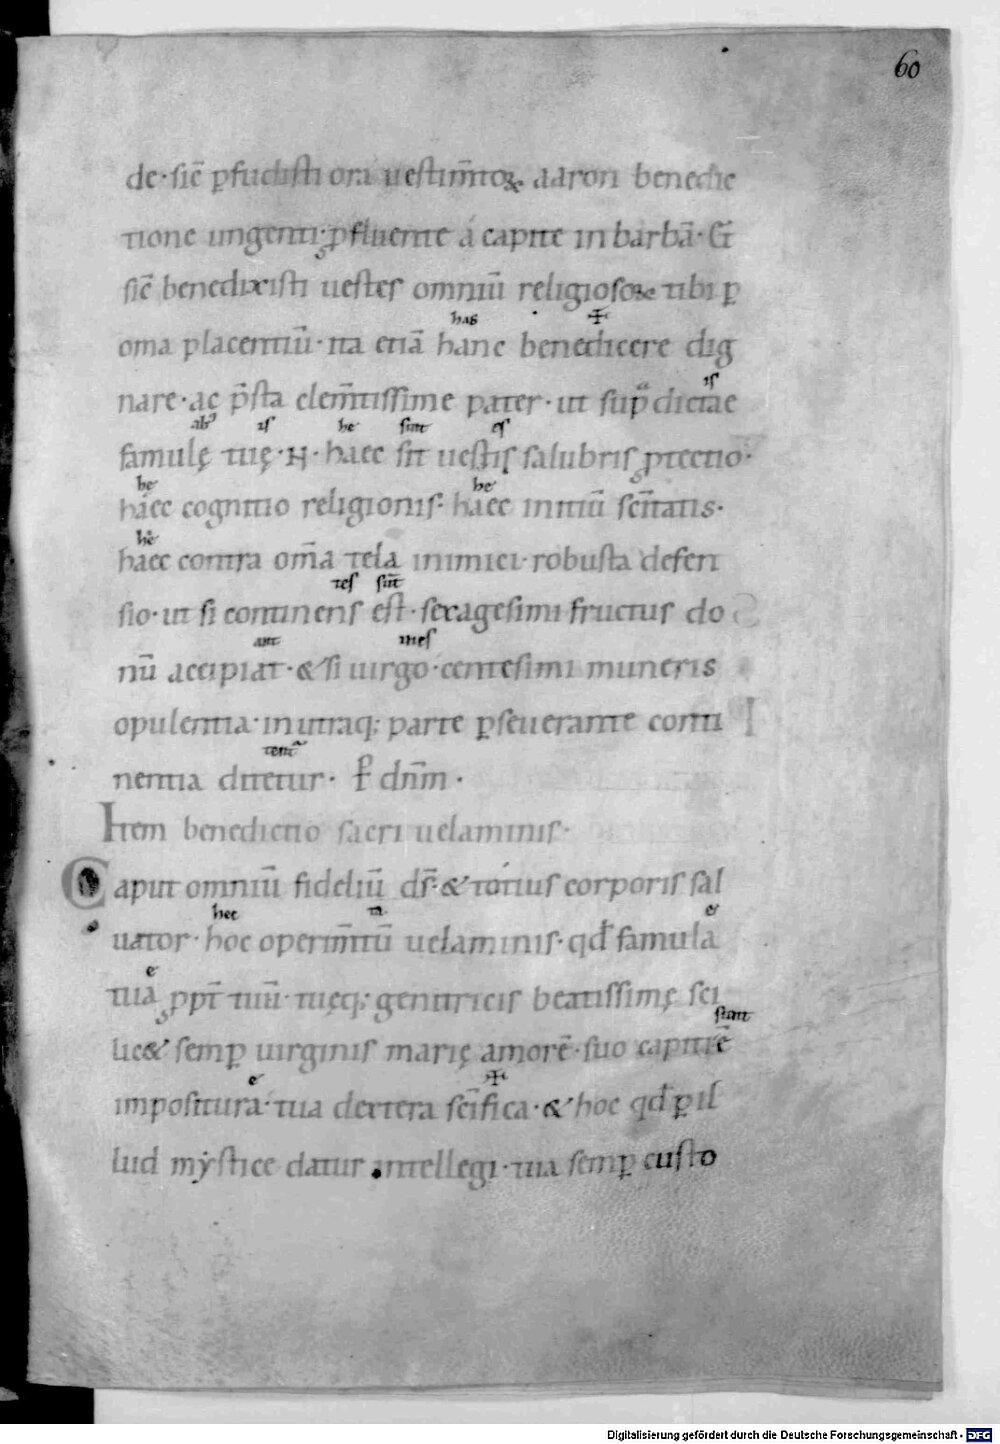 60
de· sic̄ ꝑfudisti ora uestim̄toꝝ aaron benedic
tione ungenti ꝓfluente á capite in barbā· Et
sic̄ benedixisti uestes omniū religiosoꝝ tibi ꝑ
has ✢
oma placentiū· ita etiā hanc benedicere dig
is
nare· ac p̄sta clem̄tissime pater· ut sup̄dictae
abꝰ is he sint es
famulę tuę· N· haec sit uestis salubris ꝓtectio·
he he
haec cognitio religionis· haec initiū sc̄itatis·
he
haec contra om̄a tela inimici· robusta defen
tes sūt
sio· ut si continens est· sexagesimi fructus do
ant ines
nū accipiat· & si uirgo· centesimi muneris
opulentia· in utraq; parte ꝑseuerante conti
tent᷑
nentia ditetur· P̄ dn̄m·
Item benedictio sacri uelaminis·
Caput omniū fideliū ds̄· & totius corporis sal
hec ta e
uator· hoc operim̄tū uelaminis· qd̄ famula
e
tua ꝓpt̄ tuū· tuęq; genitricis beatissimę sci
sunt
lic& semꝑ uirginis marię amorē· suo capiti ē
e ✢
impositura· tua dextera sc̄ifica· & hoc qd̄ ꝑ il
lud mẏstice datur intellegi· tua semꝑ custo
Digitalisierung gefördert durch die Deutsche Forschungsgemeinschaft - DFG